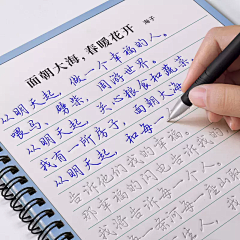 面朝大海，春暖花开
海子
从明天起，做一个幸福的人。
喂马、劈柴，周游世界。
从明天起，关心粮食和蔬菜。
我有一所房子，面朝大海
从明天起，和每一
告诉他们我的幸福。
那幸福的闪电告诉我的
我将告诉每一个人
给每一条河每一座山